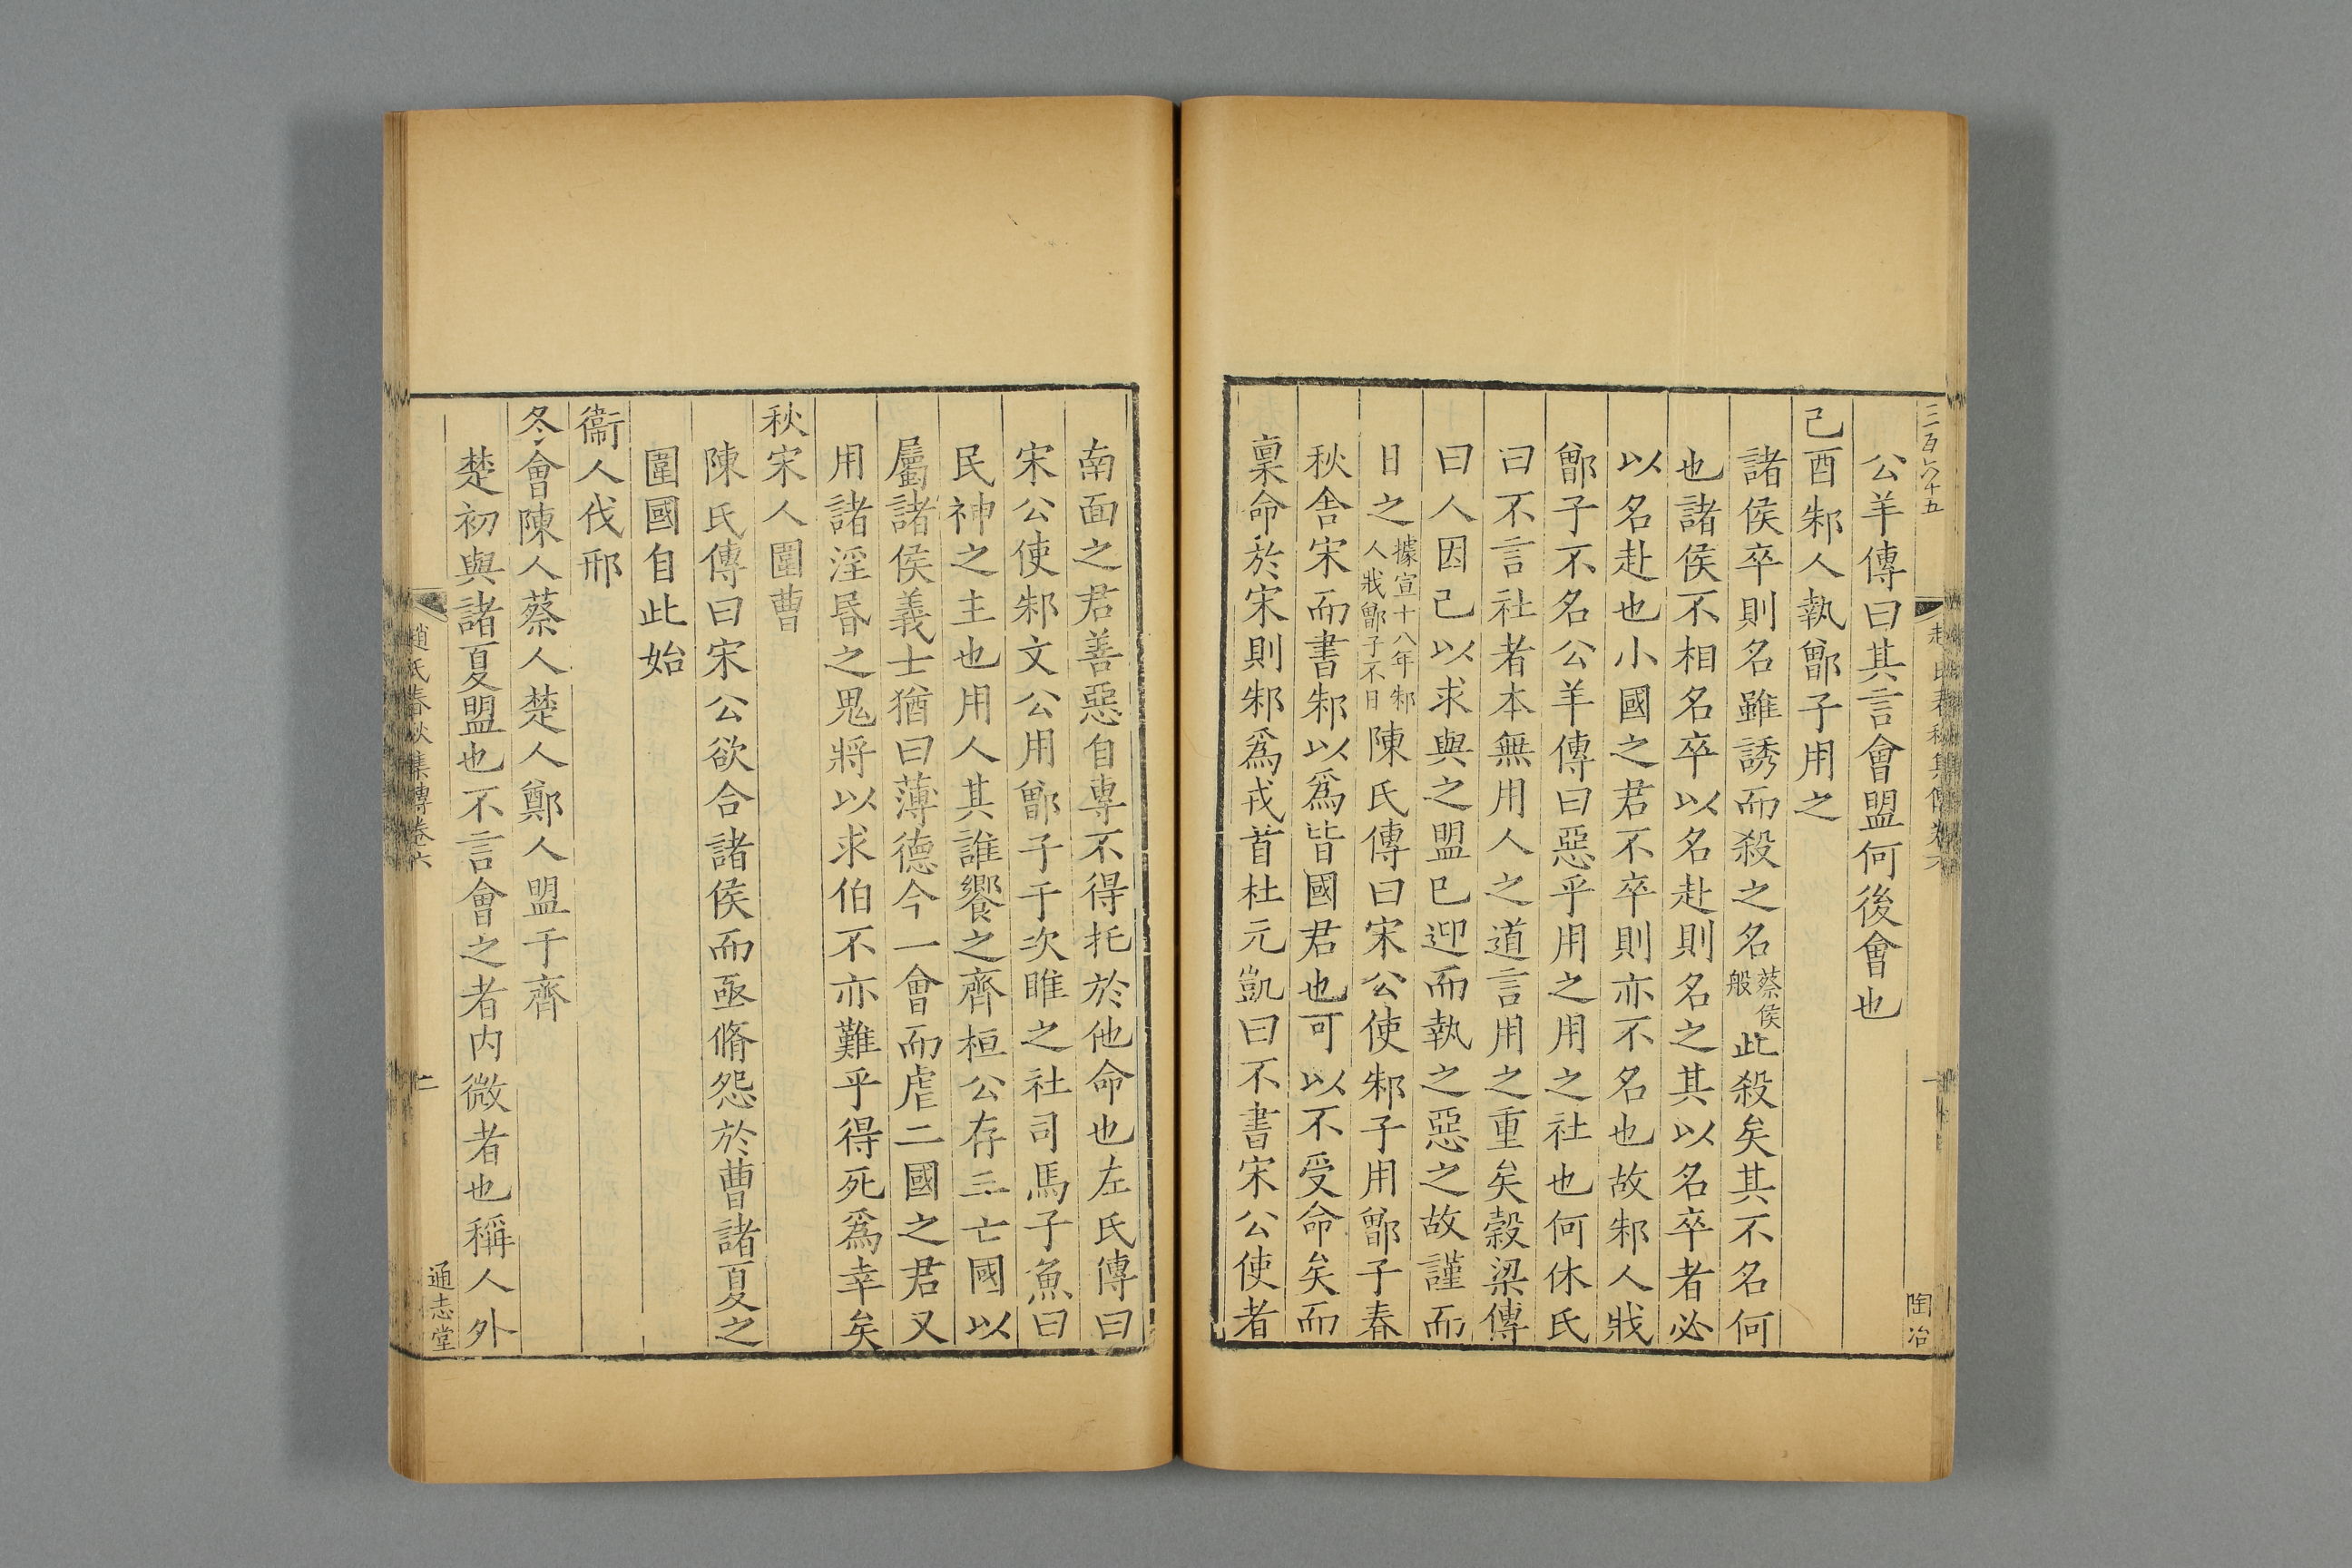 三百六十五
公羊傳曰其言會盟何後會也
己酉邾人執鄫子用之
諸侯卒則名雖誘而殺之名蔡侯般此殺矣其不名何
也諸侯不相名卒以名赴則名之其以名卒者必
以名赴也小國之君不卒則亦不名也故邾人戕
鄫子不名公羊傳曰惡乎用之用之社也何休氏
曰不言社者本無用人之道言用之重矣穀梁傳
曰人因己以求與之盟已迎而執之惡之故謹而
日之據宣十八年邾人戕鄫子不日陳氏傳曰宋公使邾子用鄫子春
秋舍宋而書邾以爲皆國君也可以不受命矣而
稟命於宋則邾爲戎首杜元凱曰不書宋公使者
趙氏春秋集傳卷六
一
陶冶
南面之君善惡自專不得托於他命也左氏傳曰
宋公使邾文公用鄫子于次睢之社司馬子魚曰
民神之主也用人其誰饗之齊桓公存三亡國以
屬諸侯義士猶曰薄德今一會而虐二國之君又
用諸淫昬之鬼將以求伯不亦難乎得死爲幸矣
秋宋人圍曹
陳氏傳曰宋公欲合諸侯而亟脩怨於曹諸夏之
圍國自此始
衞人伐邢
冬會陳人蔡人楚人鄭人盟于齊
楚初與諸夏盟也不言會之者内微者也稱人外
趙氏春秋集傳卷六
二
通志堂